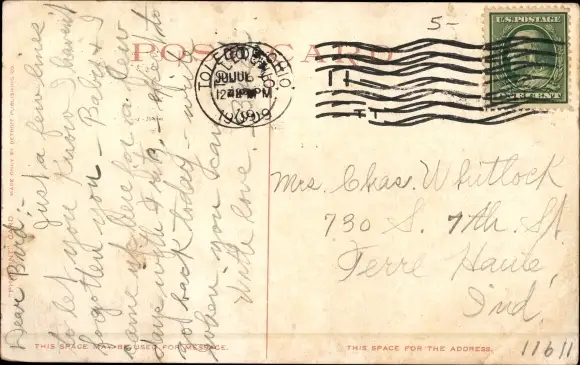 POST CARD
TOLEDO, OHIO
JUL 6
12 PM
1909
U.S. POSTAGE
ONE CENT
5-
Dear Bird:-
Just a few lines
to let you know I haven't
forgotten you - Baby & I
came up here for a few
days
go back today - write
when you can.
With love.
Mrs. Chas. Whitlock
730 S. 7th. St.
Terre Haute,
Ind.
THIS SPACE MAY BE USED FOR MESSAGE.
THIS SPACE FOR THE ADDRESS.
MADE ONLY BY DETROIT PUBLISHING CO.
11611